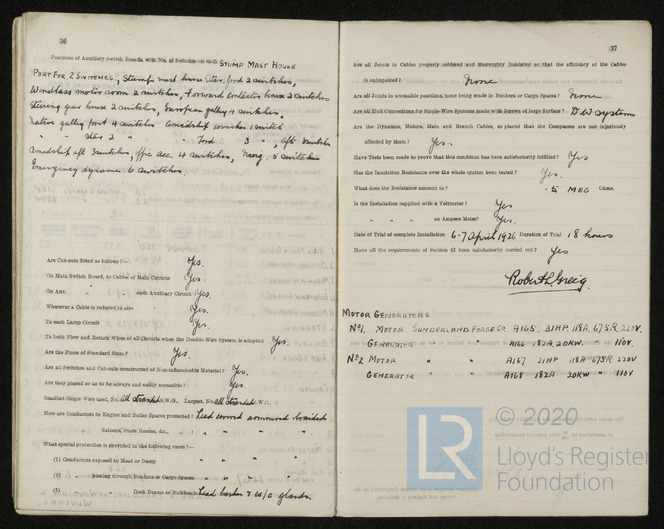 36
Positions of Auxiliary Switch Boards, with No. of Switches on each STUMP MAST HOUSE
PORT FOR 2 SWITCHES, Stump mast house star. ford 2 switches,
Windlass motor room 2 switches, Forward contactor house 2 switches
Steering gear house 2 switches, European galley 4 switches,
native galley port 4 switches Amidship 1 switch
" " star 2 " " Ford 3 " aft 3 switches
Amidship aft 3 switches, offic acc. 4 switches, Navig. 5 switches
Emergency dynamo 6 switches.
Are Cut-outs fitted as follows:— Yes.
On Main Switch Board, to Cables of Main Circuits Yes.
On Aux. " " each Auxiliary Circuit Yes.
Wherever a Cable is reduced in size " Yes.
To each Lamp Circuit Yes.
To both Flow and Return Wires of all Circuits when the Double-Wire System is adopted Yes.
Are the Fuses of Standard Sizes? Yes.
Are all Switches and Cut-outs constructed of Non-inflammable Material? Yes.
Are they placed so as to be always and easily accessible? Yes.
Smallest Single Wire used, No. All Stranded S.W.G., Largest, No. All Stranded S.W.G.
How are Conductors in Engine and Boiler Spaces protected? Lead covered armoured braided
" Saloons, State Rooms, &c., " " " " "
What special protection is provided in the following cases?—
(1) Conductors exposed to Heat or Damp " " "
(2) " passing through Bunkers or Cargo Spaces " " "
(3) " " Deck Beams or Bulkheads Lead bushes & W/T glands.
37
Are all Joints in Cables properly soldered and thoroughly insulated so that the efficiency of the Cables
is unimpaired? None
Are all Joints in accessible positions, none being made in Bunkers or Cargo Spaces? None
Are all Hull Connections for Single-Wire Systems made with Screws of large Surface? D W system
Are the Dynamos, Motors, Main and Branch Cables, so placed that the Compasses are not injuriously
affected by them? Yes.
Have Tests been made to prove that this condition has been satisfactorily fulfilled? Yes
Has the Insulation Resistance over the whole system been tested? Yes.
What does the Resistance amount to? MEG Ohms.
Is the Installation supplied with a Voltmeter? Yes
" " " an Ampere Meter? Yes.
Date of Trial of complete Installation 6-7 April 1926 Duration of Trial 18 hours
Have all the requirements of Section 42 been satisfactorily carried out? Yes
Robert L Greig.
MOTOR GENERATORS
No 1. MOTOR SUNDERLAND FORGE CO. A165, 31HP. 118A 675R 220V.
GENERATOR " A166 182A 20KW " 110V.
No 2 MOTOR " " A167 31HP 118A 675R 220V
GENERATOR " " A168 182A 20KW " 110V
© 2020
LR
Lloyd's Register
Foundation